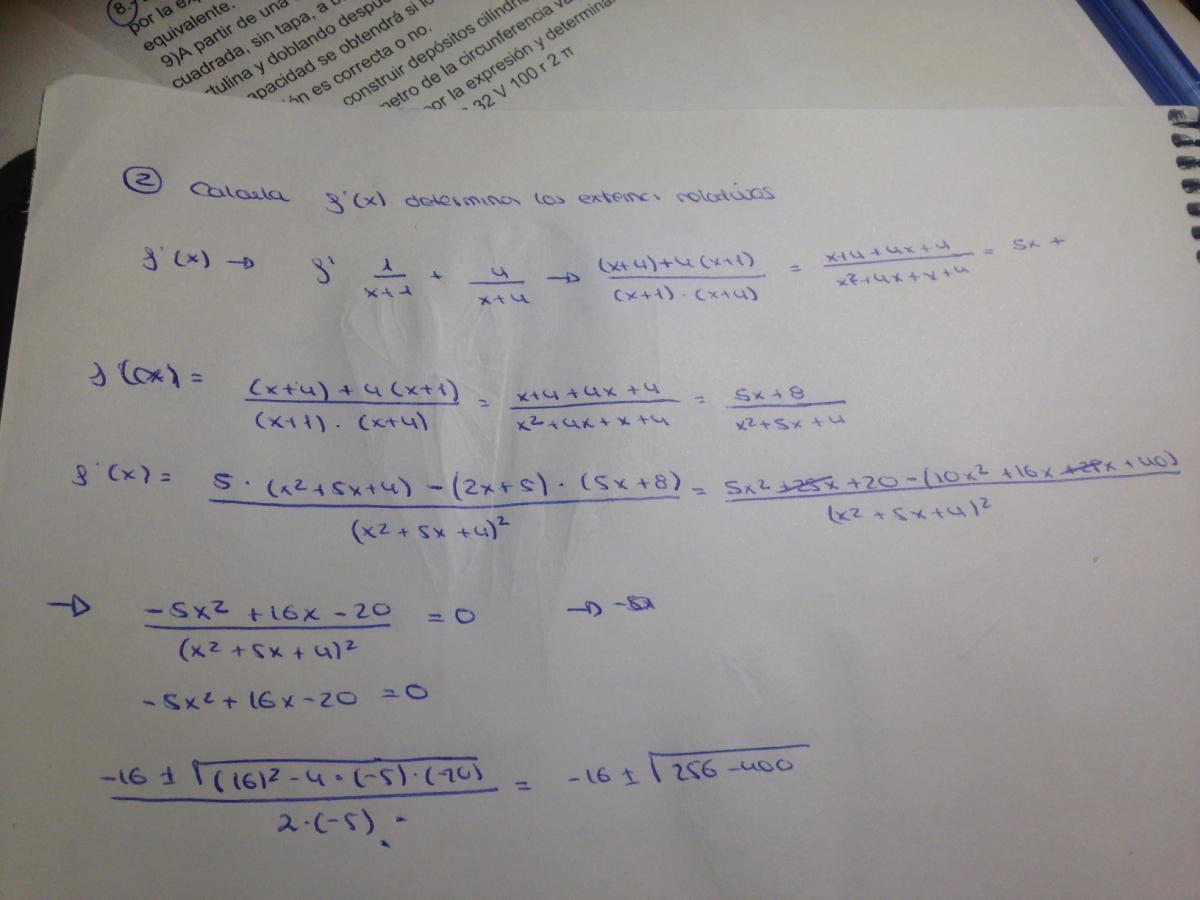 8.-
por la ex
equivalente.
9)A partir de una
cuadrada, sin tapa, a b
rtulina y doblando despué
apacidad se obtendrá si lo
ón es correcta o no.
construir depósitos cilíndri
metro de la circunferencia va
por la expresión y determinar
32 V 100 r 2 π
② Calcula f'(x) determina los extemos relativos
f'(x) → f' 1/(x+1) + 4/(x+4) → ((x+4)+4(x+1))/((x+1)·(x+4)) = (x+4+4x+4)/(x²+4x+x+4) = 5x +
f'(x) = ((x+4)+4(x+1))/((x+1)·(x+4)) = (x+4+4x+4)/(x²+4x+x+4) = (5x+8)/(x²+5x+4)
f'(x) = (5·(x²+5x+4)-(2x+5)·(5x+8))/(x²+5x+4)² = (5x²+25x+20-(10x²+16x+25x+40))/(x²+5x+4)²
→ (-5x²+16x-20)/(x²+5x+4)² = 0 → -5x
-5x²+16x-20 = 0
(-16±√((16)²-4·(-5)·(-20)))/(2·(-5)) = -16±√(256-400)